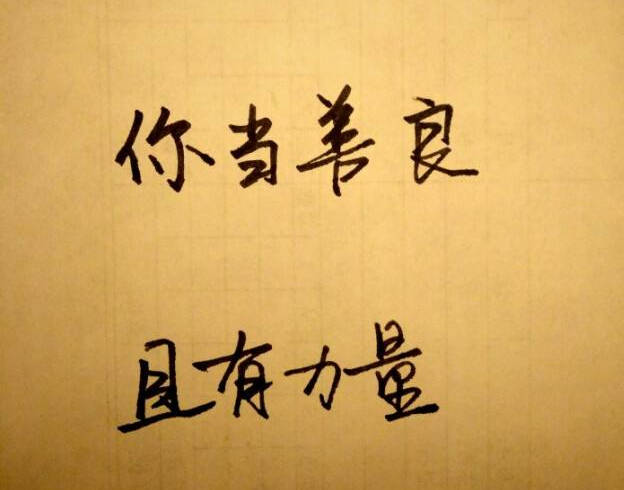 你当善良
且有力量